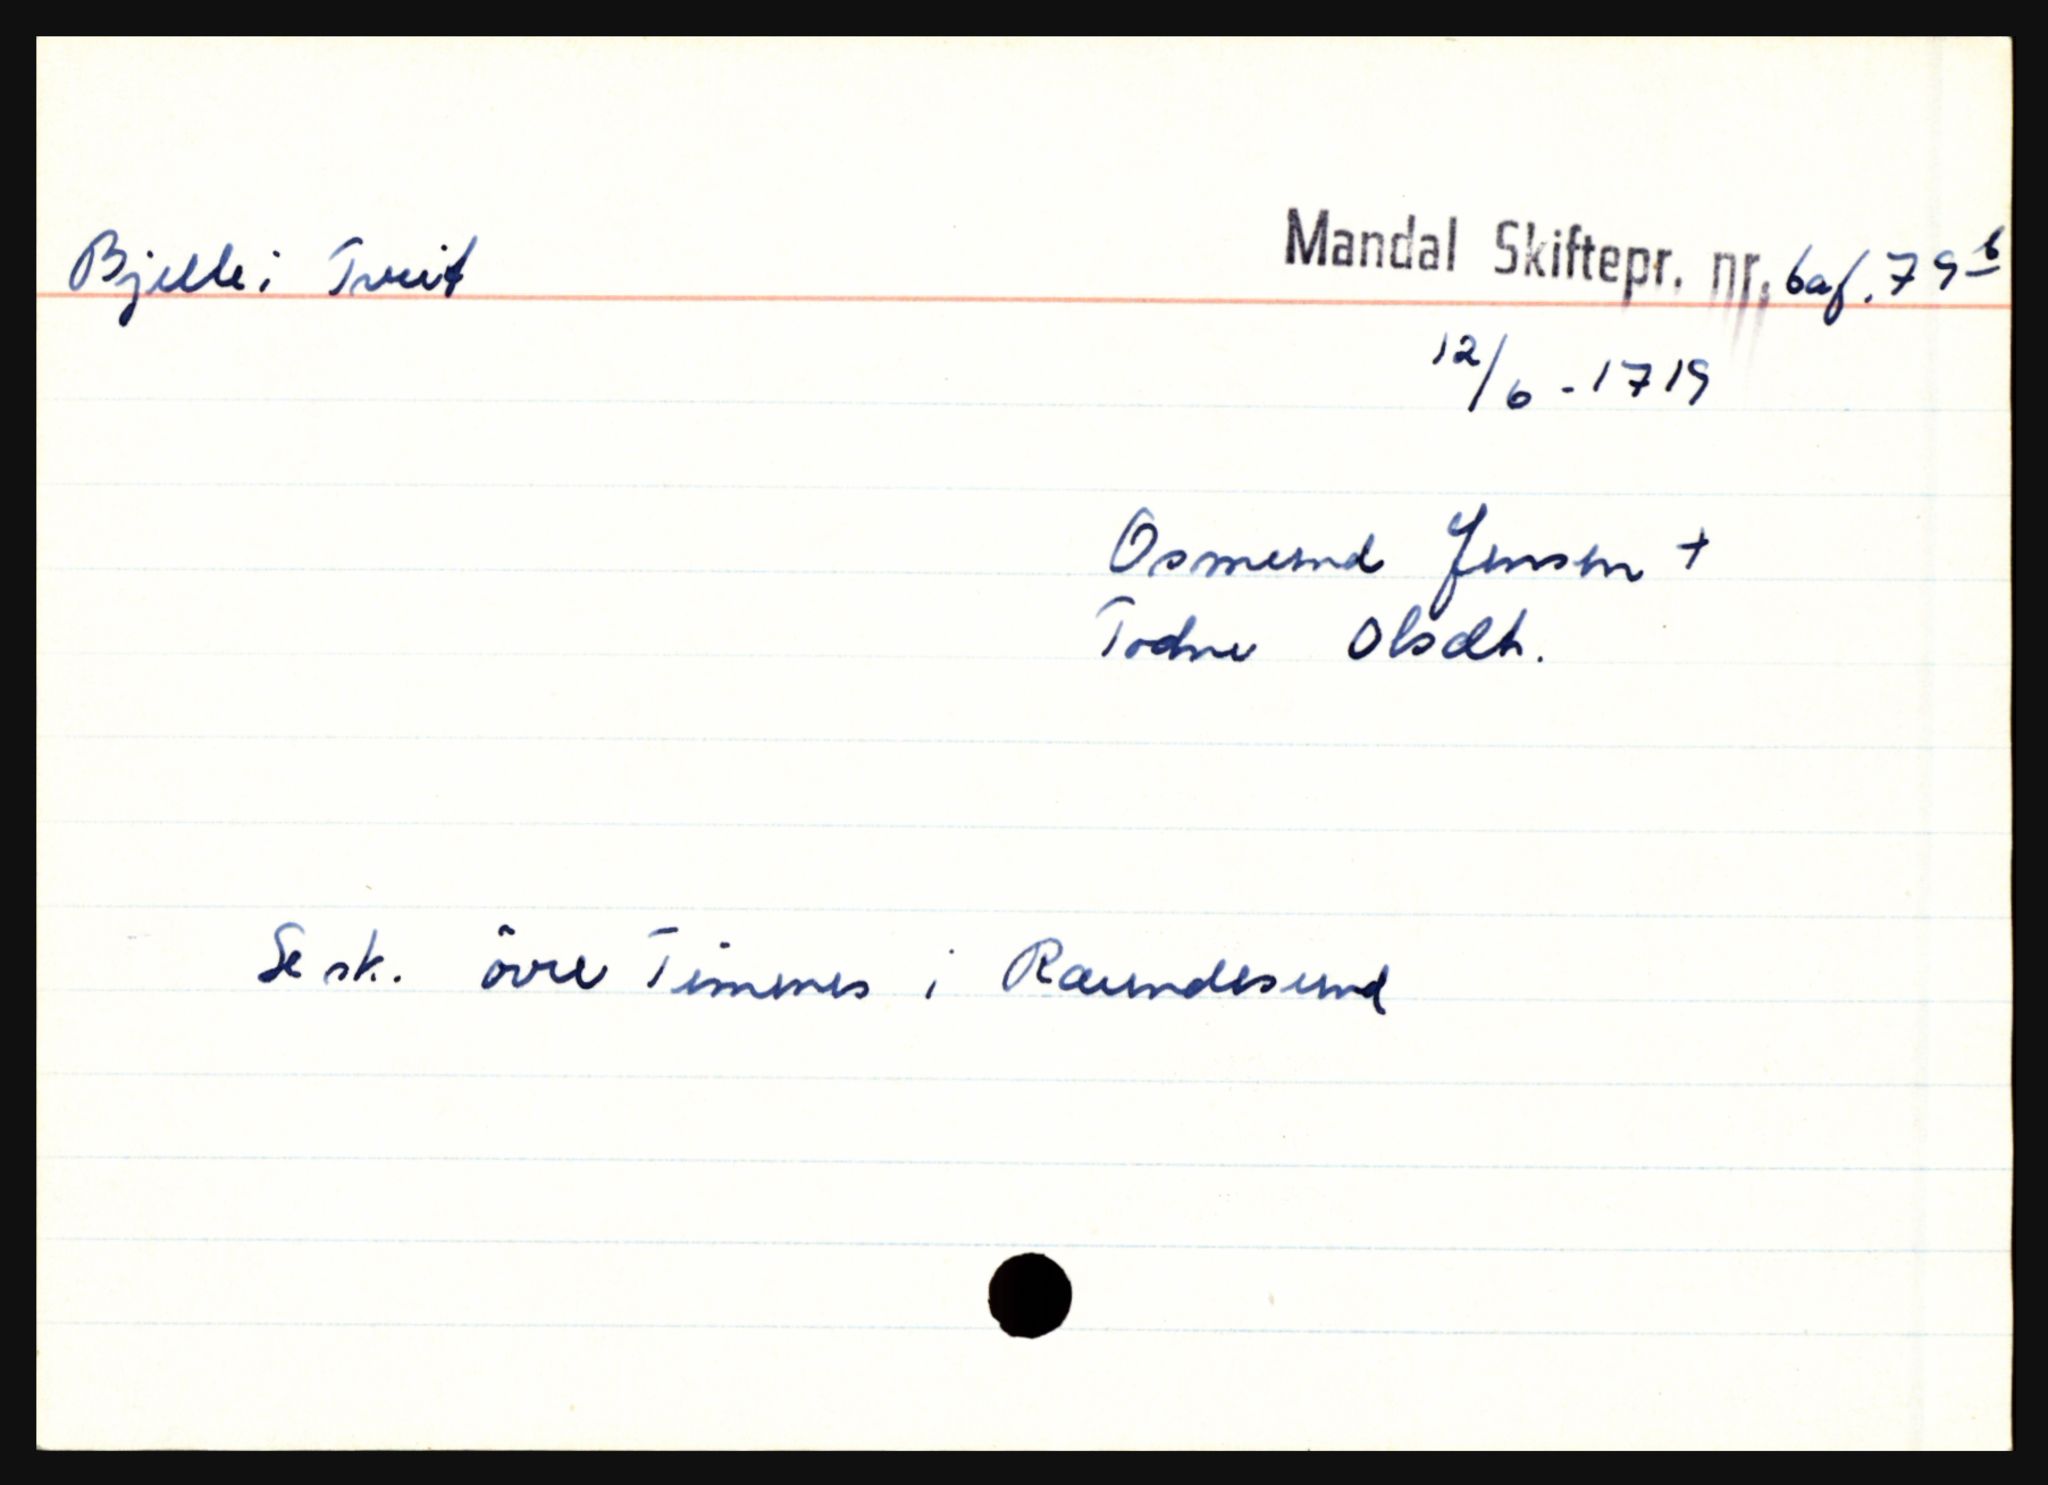 Bjelle i Tveit
Mandal Skiftepr. nr. 6af. 79 b
12/6 - 1719
Osmund Jensen +
Todne Olsdt.
Se sk. övre Timenes i Raundesund